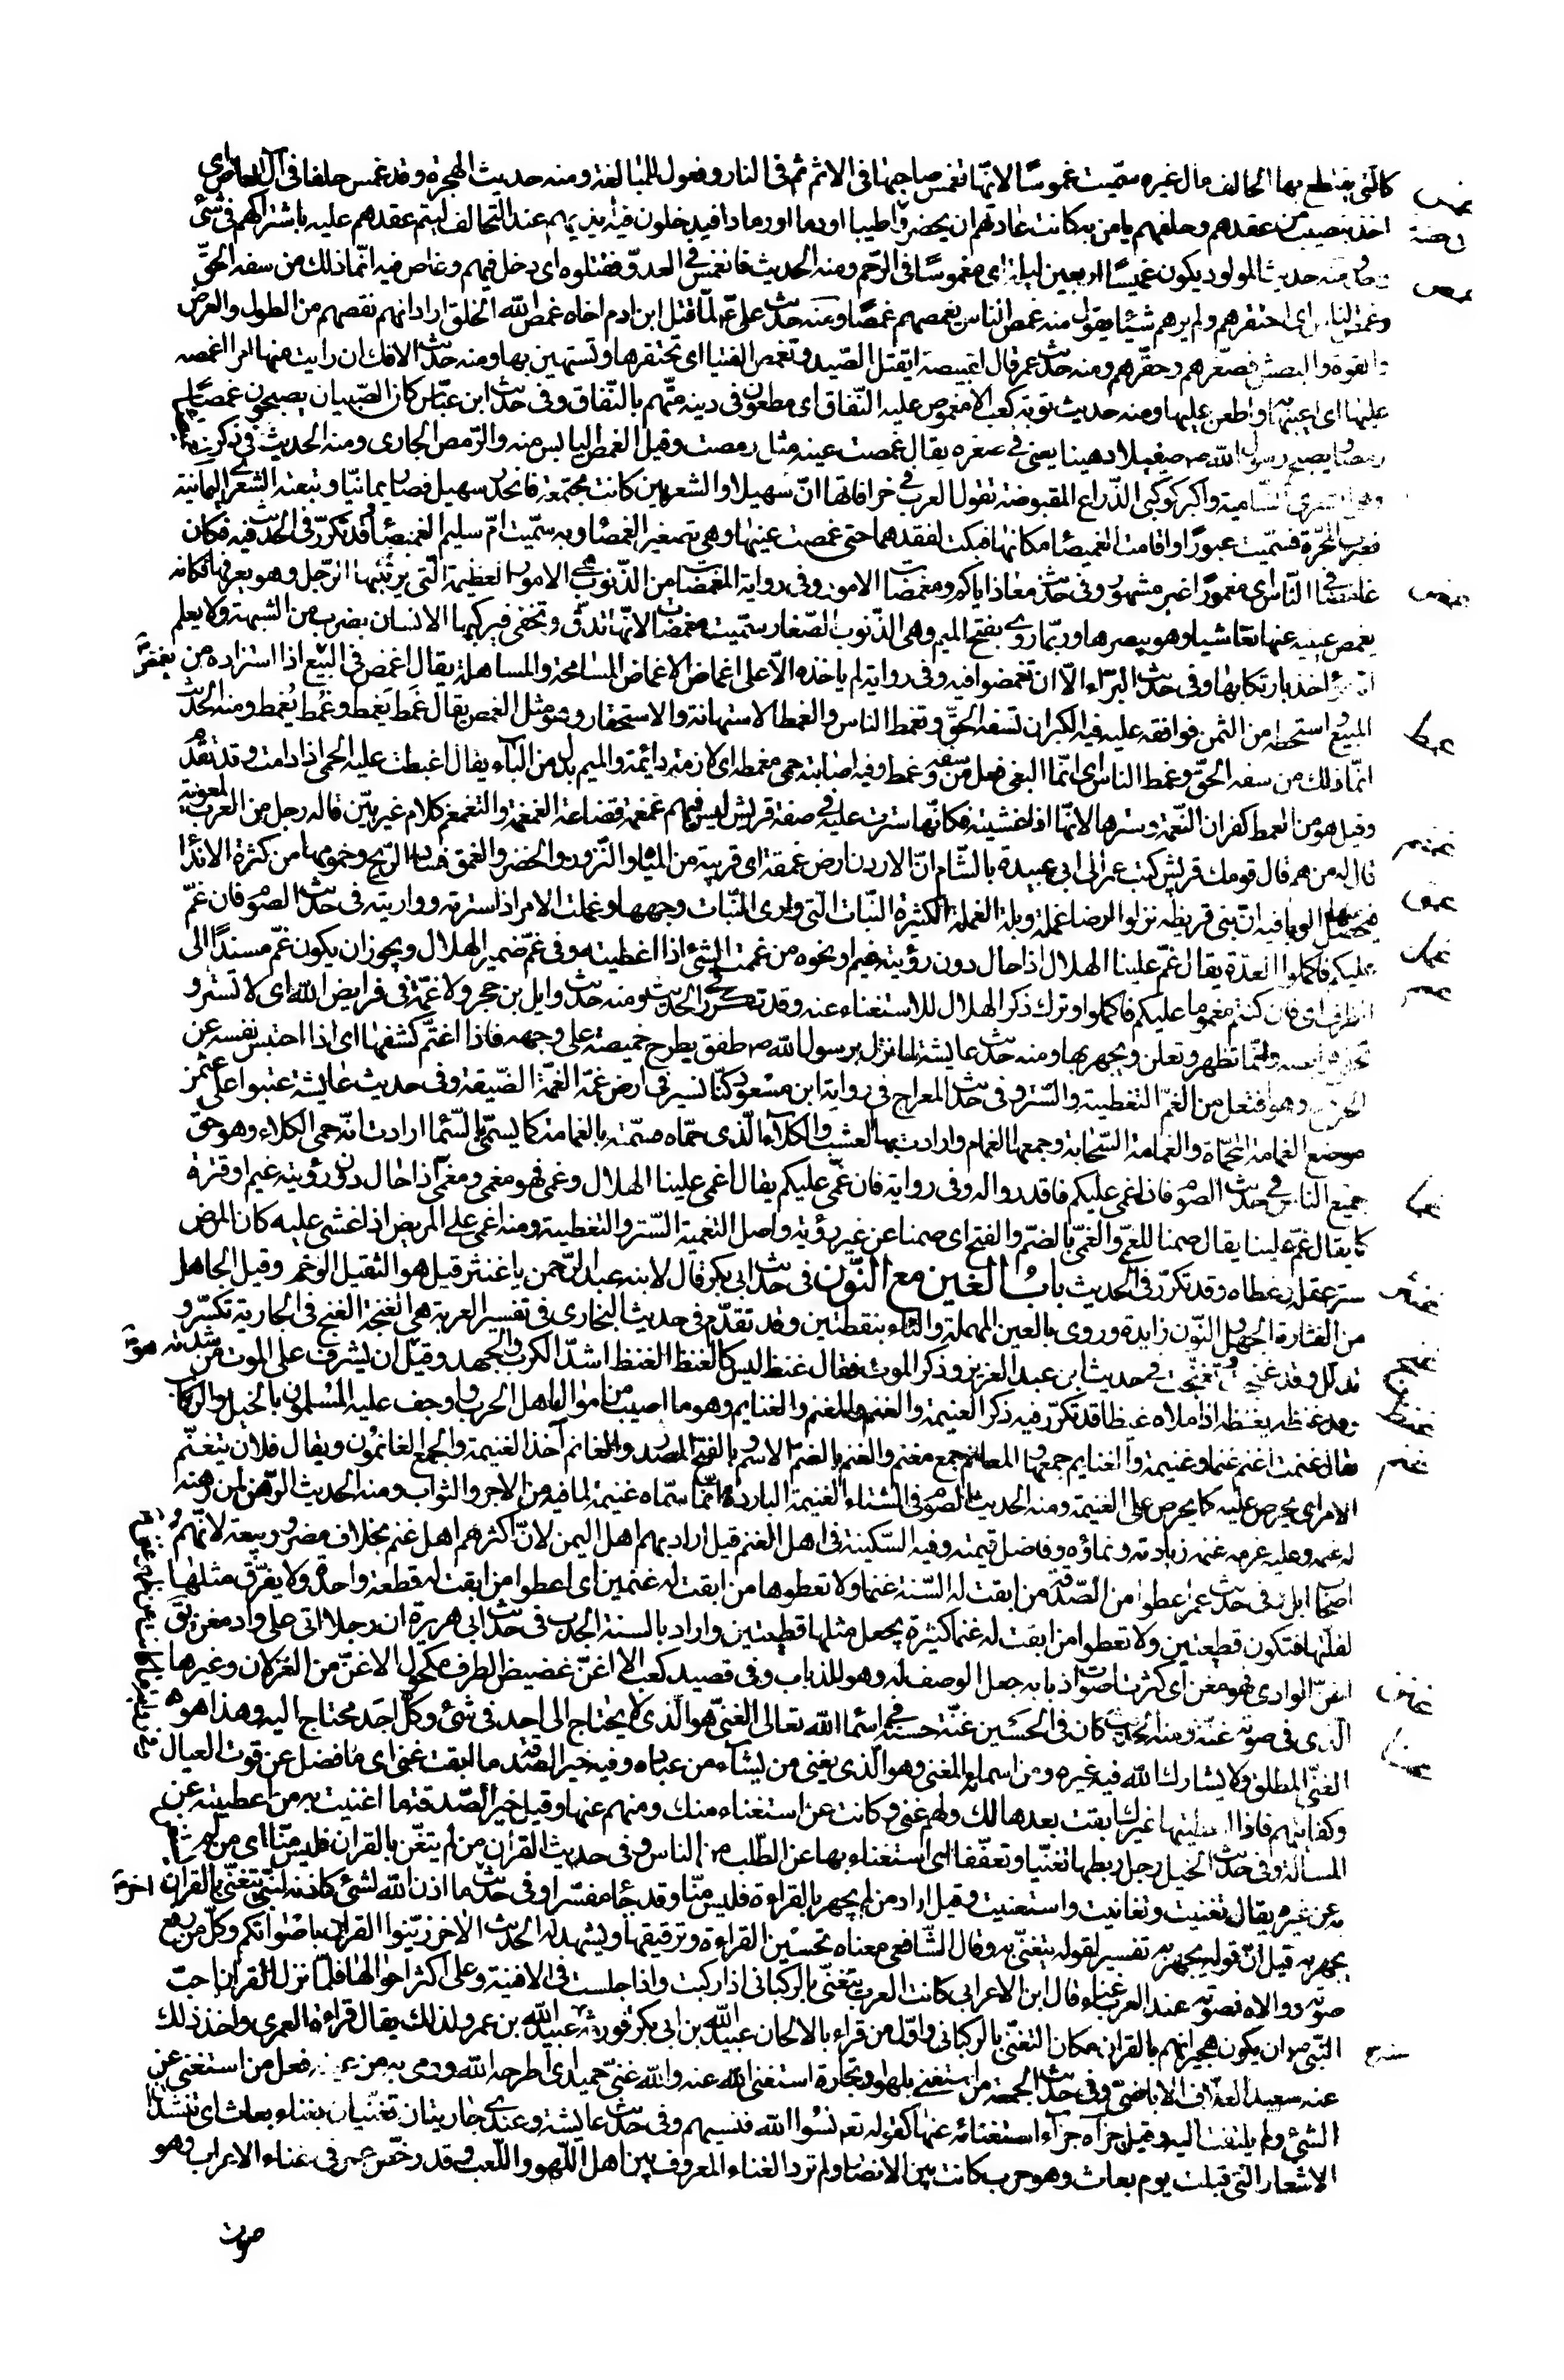 كالتي يقتطع بها الحالف مال غيره سمّيت غموسًا لانّها تغمس صاحبها في الاثم ثم في النار وفعول للمبالغة ومنه حديث الهجرة وقد غمس حلفا في آل العاص اي
اخذ بنصيب من عقدهم وحلفهم يامن به كانت عادتهم ان يحضروا طيبا او دما او رمادا فيدخلون فيه ايديهم عند التحالف ليتم عقدهم عليه باشتراكهم في شئ
ومنه حديث المولود يكون غميسًا اربعين ليلة اي مغموسًا في الرّحم ومنه الحديث فانغمس في العدوّ فقتلوه اي دخل فيهم وغاص فيه انّما ذلك من سفه الحقّ
وغمص الناس اي احتقرهم ولم يرهم شيئا يقول منه غمص الناس يغمصهم غمصًا ومنه حديث علي لمّا قتل ابن ادم اخاه غمص الله الخلق اراد انهم نقصهم من الطول والعرض
والقوة والبطش فصغّرهم وحقّرهم ومنه حديث عمر قال لقبيصة ايقتل الصّيد وتغمص الفتيا اي تحتقرها وتستهين بها ومنه حديث الافك ان رايت منها امرا اغمصه
عليها اي اعيبها واطعن عليها ومنه حديث توبة كعب الا مغموص عليه النّفاق اي مطعون في دينه متّهم بالنّفاق وفي حديث ابن عبّاس كان الصّبيان يصبحون غمصًا
رمصا ويصبح رسول الله ص صقيلا دهينا يعني في صغره يقال غمصت عينه مثل رمصت وقيل الغمص اليابس منه والرّمص الجاري ومنه الحديث في ذكر
وهي الشعرى الشّامية واكبر كوكبي الذّراع المقبوضة تقول العرب في خرافاتها انّ سهيلا والشعريين كانت مجتمعة فانحدر سهيل فصار يمانيّا وتبعته الشعرى اليمانية
فعبرت المجرّة فسمّيت عبورًا واقامت الغميصا مكانها فبكت لفقدهما حتى غمصت عينها وهي تصغير الغمصا وبه سمّيت امّ سليم الغميصا قد تكرّر في الحديث فيه فكان
غامضا في النّاس اي مغمورًا غير مشهور وفي حديث معاذ اياكم ومغمضات الامور وفي رواية المغمضات من الذّنوب هي الامور العظيمة الّتي يرتكبها الرّجل وهو يعرفها فكانه
يغمض عينيه عنها تعاشيا وهو يبصرها وربّما روي بفتح الميم وهي الذّنوب الصّغار سمّيت مغمضات لانّها تدقّ وتخفى فيركبها الانسان بضرب من الشبهة ولا يعلم
انه مؤاخذ بارتكابها وفي حديث البرّاء الّا ان تغمضوا فيه وفي رواية لم ياخذه الّا على اغماض الاغماض المسامحة والمساهلة يقال اغمض في البيع اذا استزاده من
المبيع واستحطه من الثمن فوافقه عليه فيه الكبر ان تسفه الحقّ وتغمط الناس والغمط الاستهانة والاستحقار وهو مثل الغمص يقال غمِط يَغمَط وغمَط يغمِط ومنه الحديث
انّما ذلك من سفه الحقّ وغمط الناس اي انّما البغي فعل من سفه وغمط وفيه اصابته حمى مغمطة اي لازمة دائمة والميم بدل من الباء يقال اغبطت عليه الحمى اذا دامت وقد تقدّم
وقيل هو من الغمط كفران النّعمة وسترها لانّها اذا غشيته فكانّها سترت عليه في صفة قريش ليس فيهم غمغمة قضاعة الغمغمة والتغمغم كلام غير بيّن قاله رجل من العرب لمعوية
قال له من هم قال قومك قريش كتب عمر الى ابي عبيدة بالشّام انّ الاردن ارض غمقة اي قريبة من المياه والنّزوز والخضر والغمق فساد الرّيح وخمومها من كثرة الانداء
فيحصل منها الوباء فيه انّ بني قريظة نزلوا ارضا غملة وبلة الغملة الكثيرة النّبات الّتي وارى النّبات وجهها وغملت الامر اذا سترته وواريته في حديث الصوم فان غمّ
عليكم فاكملوا العدّة يقال غمّ علينا الهلال اذا حال دون رؤيته غيم او نحوه من غممت الشئ اذا غطيته وفي غمّ ضمير الهلال ويجوز ان يكون غمّ مسندًا الى
الظرف اي فان كنتم مغموما عليكم فاكملوا وترك ذكر الهلال للاستغناء عنه وقد تكرّر في الحديث ومنه حديث وايل بن حجر ولا غمّة في فرايض الله اي لا تستر و
تخفى فرايضه وانّما تظهر وتعلن ويجهر بها ومنه حديث عايشة لما نزل برسول الله ص طفق يطرح خميصته على وجهه فاذا اغتمّ كشفها اي اذا احتبس نفسه عن
الخروج وهو افتعل من الغمّ التغطية والسّتر وفي حديث المعراج في رواية ابن مسعود كنّا نسير في ارض غمّة الغمّة الضّيقة وفي حديث عايشة عتبوا على عثمن
موضع الغمامة المحماة والغمامة السّحابة وجمعها الغمام وارادت بها العشب والكلاء الّذي حماه فسمّته بالغمامة كما يسمّى بالسّماء ارادت انّه حمى الكلاء وهو حق
جميع الناس في حديث الصوم فان اغمي عليكم فاقدروا له وفي رواية فان غمّي عليكم يقال اغمي علينا الهلال وغمي فهو مغمى ومغمّى اذا حال دون رؤيته غيم او قترة
كما يقال غمّ علينا يقال صمنا للغمّى والغمّى بالضمّ والفتح اي صمنا عن غير رؤية واصل التغمية السّتر والتغطية ومنه اغمي على المريض اذا غشي عليه كان المرض
ستر عقله وغطاه وقد تكرّر في الحديث باب الغين مع النّون في حديث ابي بكر قال لابنه عبد الرّحمن يا غنثر قيل هو الثقيل الوخم وقيل الجاهل
من الغثارة الجهل والنّون زايدة وروي بالعين المهملة والتاء بنقطتين وقد تقدّم في حديث البخاري في تفسير العربة هي الغنجة الغنج في الجارية تكسّر و
تدلّل وقد غنجت وتغنّجت في حديث ابن عبد العزيز وذكر الموت فقال غنظ ليس كالغنظ الغنظ اشدّ الكرب والجهد وقيل ان يشرف على الموت من شدته
وقد غنظه يغنظه اذا ملاه غيظا قد تكرّر فيه ذكر الغنيمة والغنم والمغنم والغنايم وهو ما اصيب من اموال اهل الحرب واوجف عليه المسلمون بالخيل والركاب
يقال غنمت اغنم غنما وغنيمة والغنايم جمعها والمغانم جمع مغنم والغنم بالضمّ الاسم وبالفتح المصدر والغانم آخذ الغنيمة والجمع الغانمون ويقال فلان يتغنّم
الامر اي يحرص عليه كما يحرص على الغنيمة ومنه الحديث الصوم في الشتاء الغنيمة الباردة انّما سمّاه غنيمة لما فيه من الاجر والثواب ومنه الحديث الرّهن لمن رهنه
له غنمه وعليه غرمه غنمه زيادته ونماؤه وفاضل قيمته وفيه السّكينة في اهل الغنم قيل اراد بهم اهل اليمن لانّ اكثرهم اهل غنم بخلاف مضر وربيعة لانّهم
اصحاب ابل في حديث عمر اعطوا من الصّدقة من ابقت له السّنة غنما ولا تعطوها من ابقت له غنمين اي اعطوا من ابقت له قطعة واحدة ولا يفرّق مثلها
لقلّتها فتكون قطيعتين ولا تعطوا من ابقت له غنما كثيرة يجعل مثلها قطيعتين واراد بالسنة الجدب في حديث ابي هريرة ان رجلا اتى على واد مغن يق
اغنّ الوادي فهو مغن اي كثرت اصوات ذبابه جعل الوصف له وهو للذباب وفي قصيد كعب الا اغنّ غضيض الطرف مكحول الاغنّ من الغزلان وغيرها
الّذي في صوته غنّة ومنه الحديث كان في الحسين غنّة حسنة في اسماء الله تعالى الغنيّ هو الّذي لا يحتاج الى احد في شئ وكلّ احد محتاج اليه وهذا هو
الغنيّ المطلق ولا يشارك الله فيه غيره ومن اسمائه المغني وهو الّذي يغني من يشاء من عباده وفيه خير الصدقة ما ابقت غنى اي ما فضل عن قوت العيال
وكفايتهم فاذا اعطيتها غيرك ابقت بعدها لك ولهم غنى وكانت عن استغناء منك ومنهم عنها وقيل خير الصّدقة ما اغنيت به من اعطيته عن
المسألة وفي حديث الخيل رجل ربطها تغنّيا وتعفّفا اي استغناء بها عن الطّلب من الناس وفي حديث القرآن من لم يتغنّ بالقرآن فليس منّا اي من لم يستغن
به عن غيره يقال تغنيت وتغانيت واستغنيت وقيل اراد من لم يجهر بالقراءة فليس منّا وقد جاء مفسّرا وفي حديث ما اذن الله لشئ كاذنه لنبيّ يتغنّى بالقرآن
يجهر به قيل انّ قوله يجهر به تفسير لقوله يتغنّى به وقال الشّافعي معناه تحسين القراءة وترقيقها ويشهد له الحديث الاخر زيّنوا القرآن باصواتكم وكلّ من رفع
صوته ووالاه فصوته عند العرب غناء قال ابن الاعرابي كانت العرب تتغنّى بالركباني اذا ركبت واذا جلست في الافنية وعلى اكثر احوالها فلمّا نزل القرآن احبّ
النّبي ص ان يكون هجيراهم بالقرآن مكان التغنّي بالركباني واوّل من قراء بالالحان عبيد الله بن ابي بكر فورثه عبيد الله بن عمر ولذلك يقال قراءة العمري واخذ ذلك
عنه سعيد العلاف الاباضيّ وفي حديث الجمعة من استغنى بلهو وتجارة استغنى الله عنه والله غنيّ حميد اي اطرحه الله ورمى به من عينه فعل من استغنى عن
الشئ ولم يلتفت اليه وقيل جزآه جزآء استغنائه عنها كقوله تعه نسوا الله فنسيهم وفي حديث عايشة وعندي جاريتان تغنّيان بغناء بعاث اي تنشدان
الاشعار الّتي قيلت يوم بعاث وهو حرب كانت بين الانصار ولم ترد الغناء المعروف بين اهل اللّهو واللّعب وقد رخّص عمر في غناء الاعراب وهو
صوت